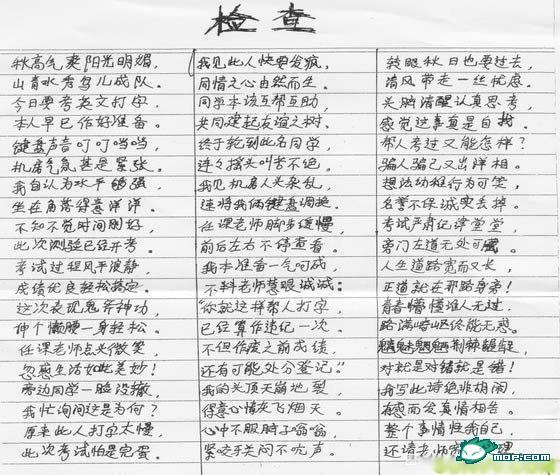 检查
秋高气爽阳光明媚，
山青水秀鸟儿成队。
今日要考英文打字，
本人早已作好准备。
键盘声音叮叮当当，
机房气氛甚是紧张。
我自认为水平够强，
坐在角落得意洋洋。
不知不觉时间刚好，
此次测验已经开考。
考试过程风平浪静，
成绩优良轻松搞定。
这次表现鬼斧神功，
伸个懒腰一身轻松。
任课老师点头微笑，
忽感生活如此美妙！
旁边同学一脸没辙，
我忙询问这是为何？
原来此人打字太慢，
此次考试怕是完蛋。
我见此人快要发疯，
同情之心由然而生。
同学本该互帮互助，
共同建起友谊之树。
终于轮到此名同学，
连々摇头叫苦不绝。
我见机房人头杂乱，
连将我俩键盘调换。
任课老师脚步缓慢，
前后左右不停查看。
我本准备一气呵成，
不料老师慧眼诚诚。
“你就这样帮人打字，
已经算作违纪一次。
不但作废之前成绩，
还有可能处分登记。”
我的头顶天崩地裂，
得意心情灰飞烟灭。
心中不服脖子嗡嗡，
紧咬牙关闷不吭声。
转眼秋日也要过去，
清风带走一丝忧虑。
头脑清醒认真思考，
感觉这事真是自找。
帮人考过又能怎样？
骗人骗己又出洋相。
想法幼稚行为可笑，
名誉不保诚实去掉。
考试严肃纪律堂堂，
旁门左道无处可藏。
人生道路宽而又长，
正道就在那路身旁！
青春懵懂谁人无过，
路满崎岖终能无惑。
荆棘
对就是对错就是错！
我写此诗绝非胡闹，
有感而发真情相告。
整个事情怪我自己，
还请老师 理
MOP.com